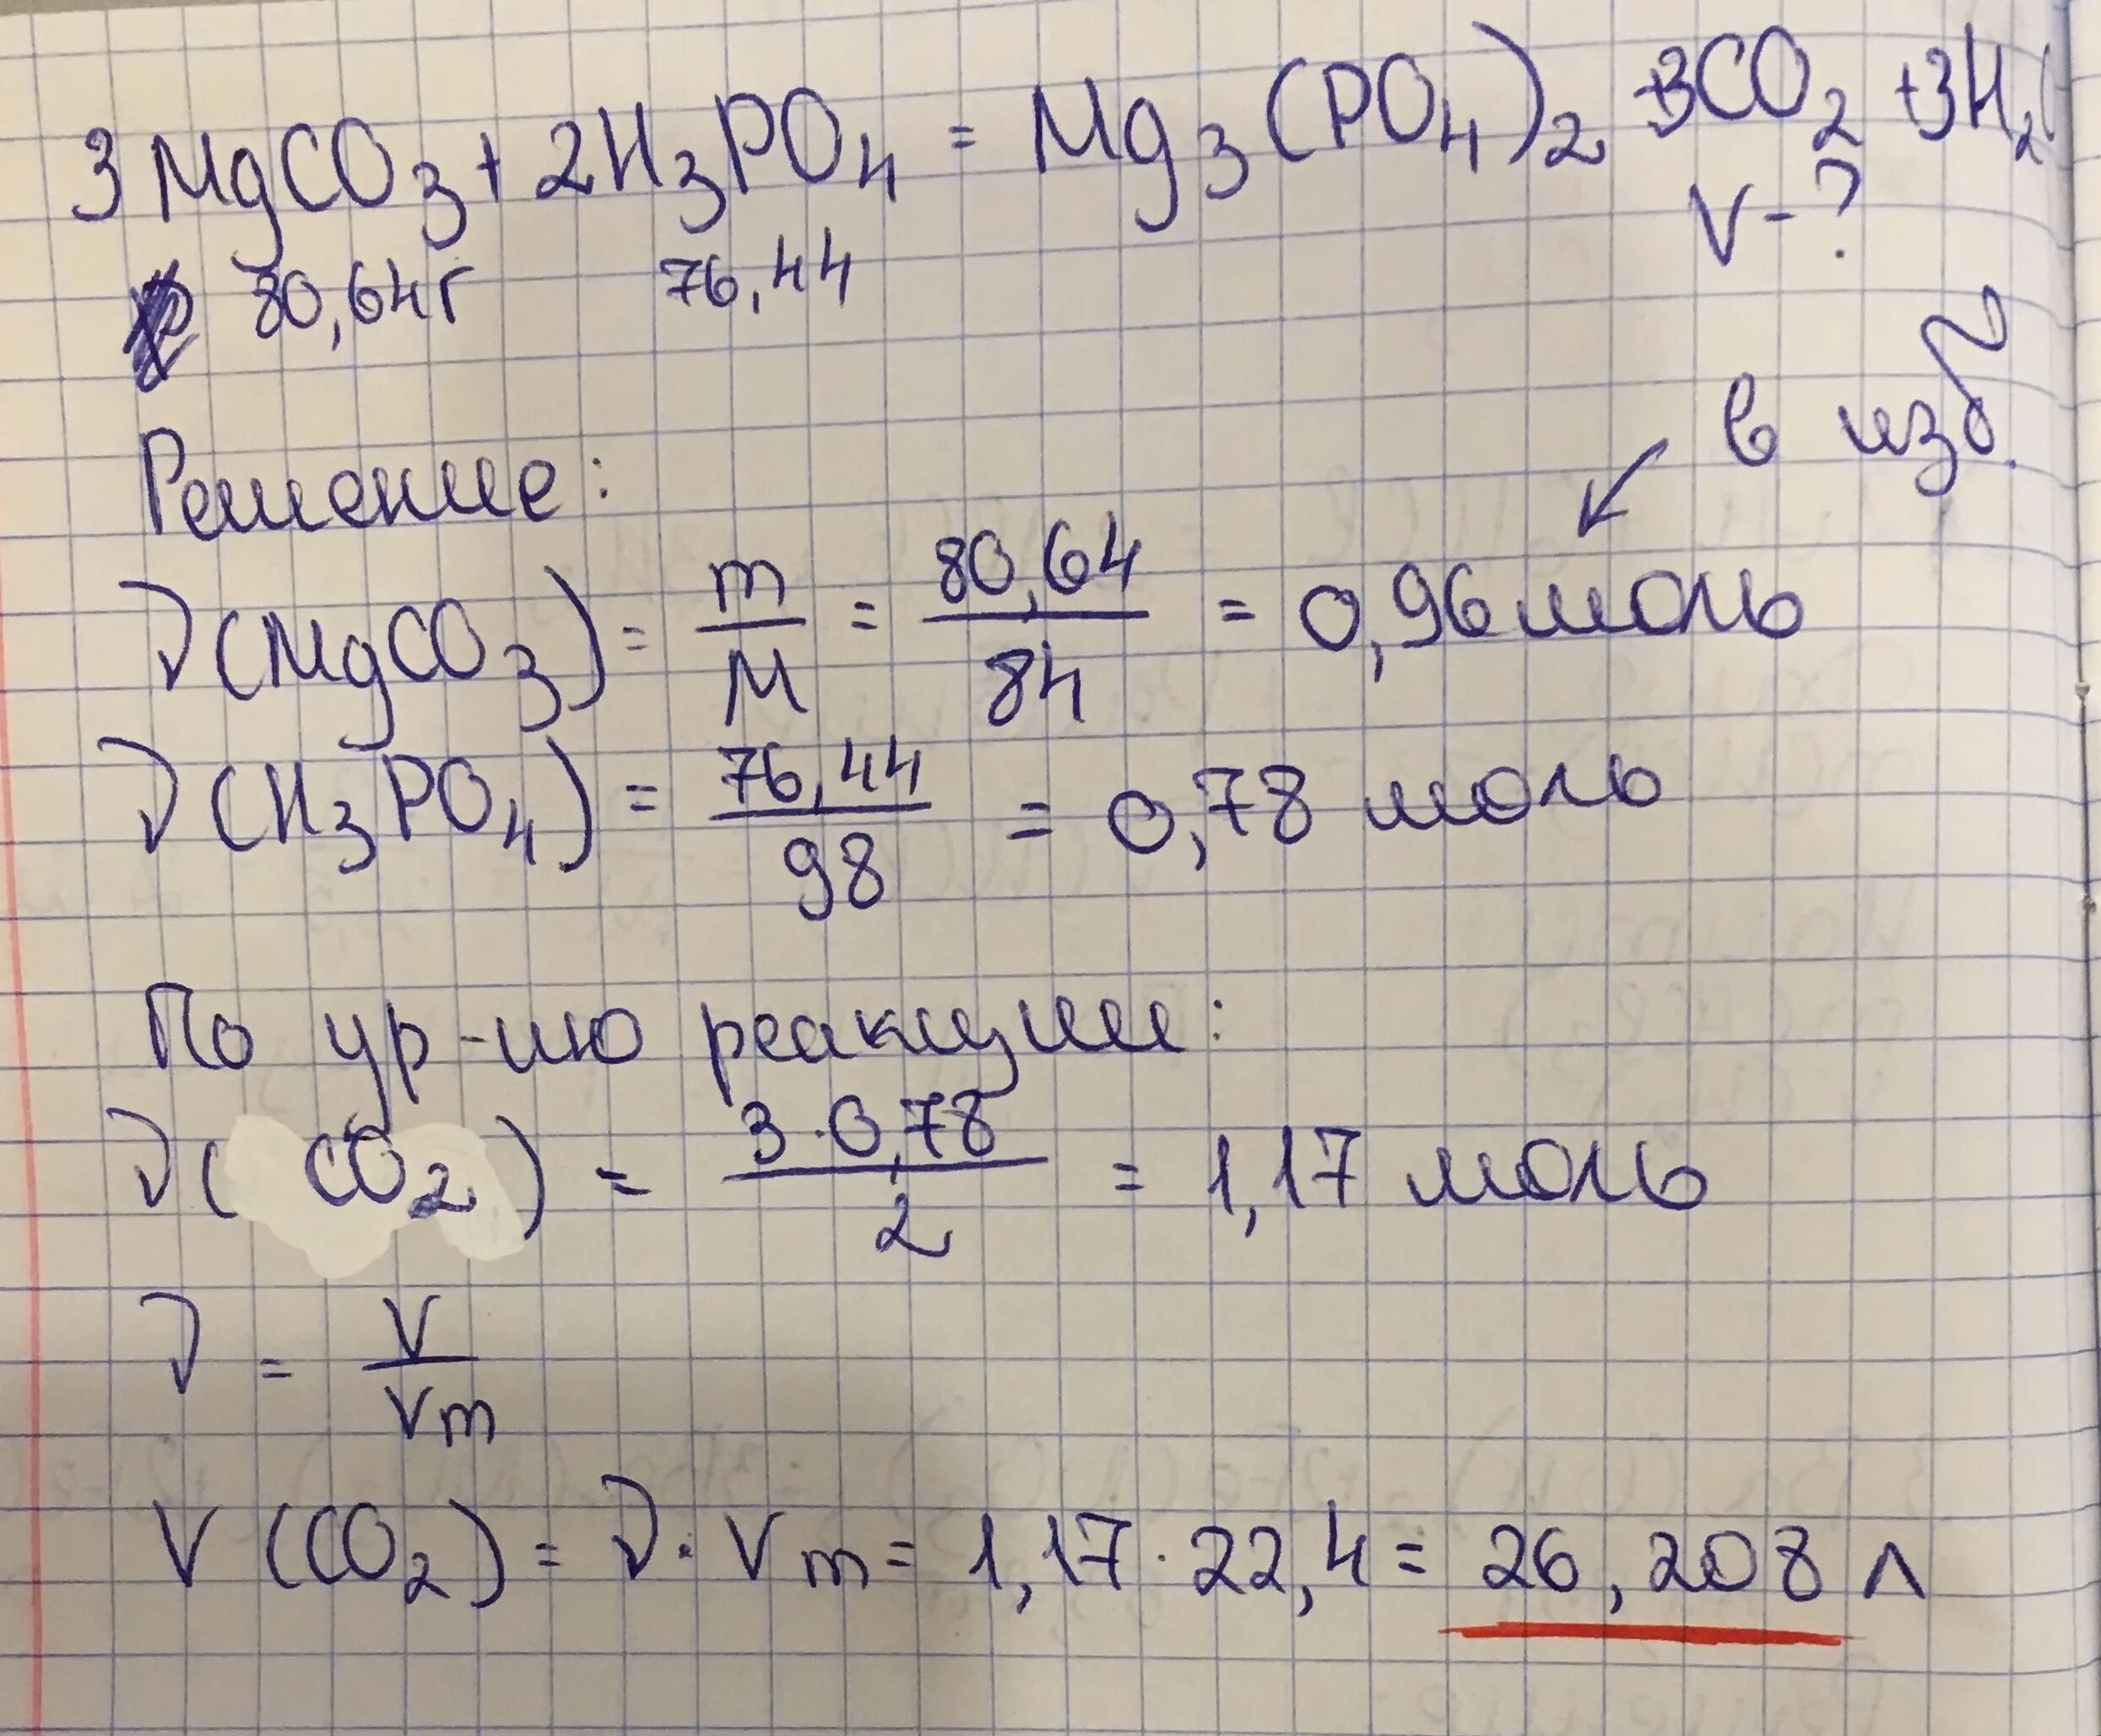 3MgCO3 + 2H3PO4 = Mg3(PO4)2 +3CO2 +3H2
80,64г 76,44 V-?
в изб.
Решение:
ν(MgCO3) = m/M = 80,64/84 = 0,96 моль
ν(H3PO4) = 76,44/98 = 0,78 моль
По ур-ию реакции:
ν(CO2) = 3·0,78/2 = 1,17 моль
ν = V/Vm
V(CO2) = ν·Vm = 1,17·22,4 = 26,208 л